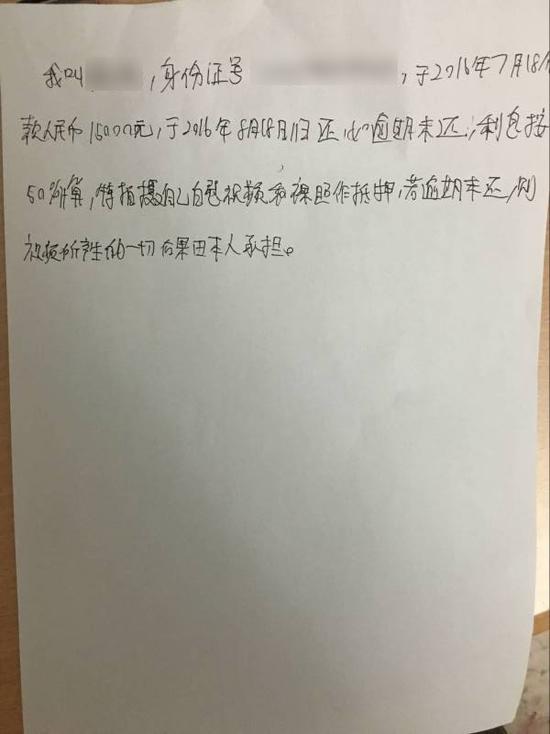 我叫 ,身份证号 ,于2016年7月18
款人民币15000元,于2016年8月18月1日还,如逾期未还,利息按
50%计算,特拍摄自己自慰视频和裸照作抵押,若逾期未还,则
视频所产生的一切后果由本人承担。